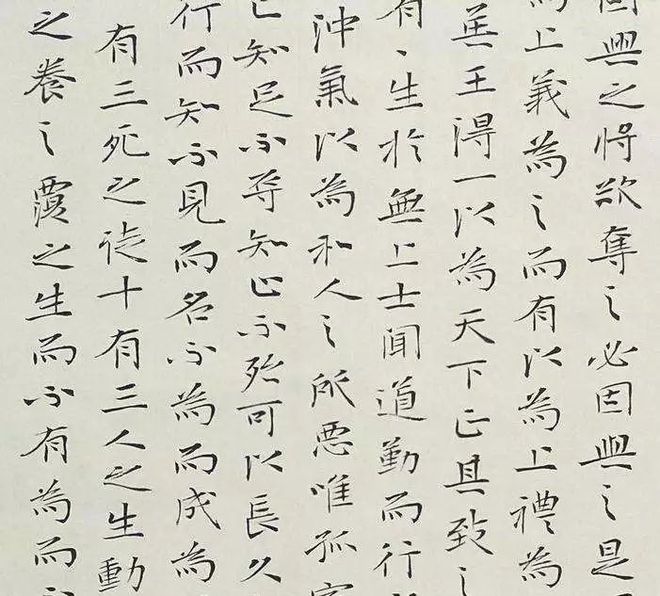 興之将欲奪之必因與之是
為上義為之而有以為上禮為
王得一以為天下正其致之
有、生於無上士聞道勤而行
沖氣以為和人之所惡唯孤
已知足不辱知止不殆可以長久
行而知不見而名不為而成為
有三死之徒十有三人之生動
之養之覆之生而不有為而不